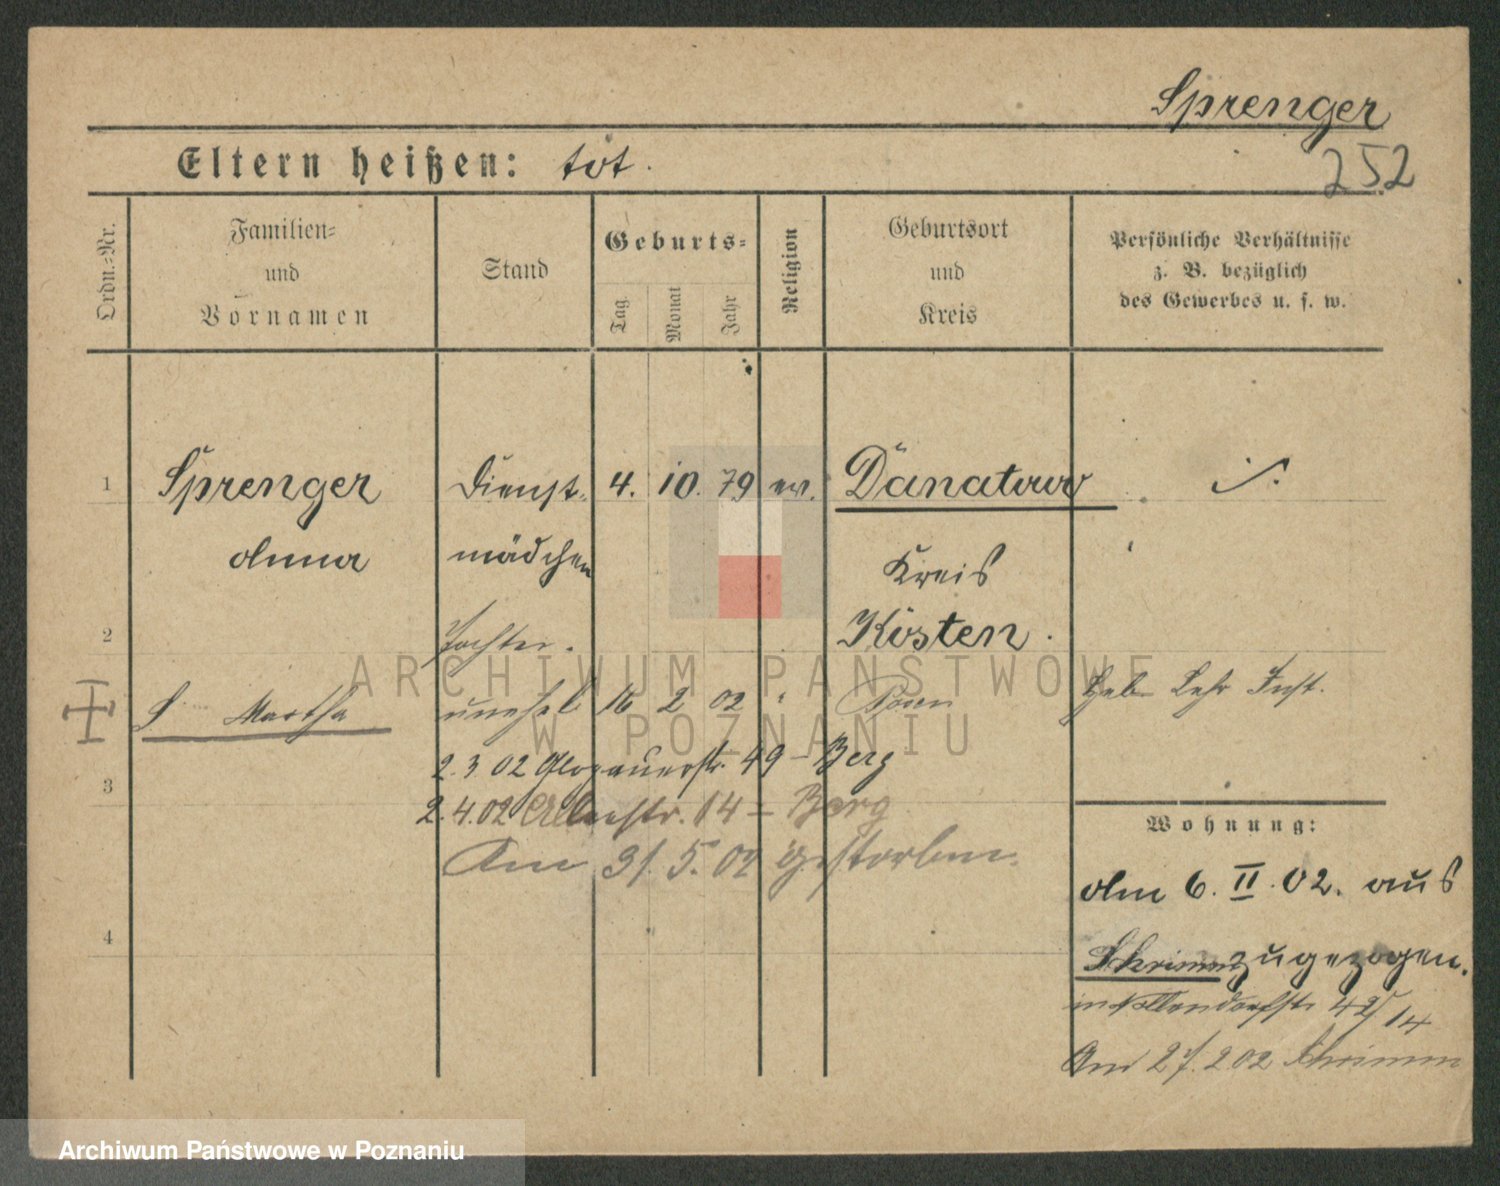 Sprenger
252
Eltern heißen: tot.
Ordn.-Nr.
Familien-
und
Vornamen
Stand
Geburts-
Tag
Monat
Jahr
Religion
Geburtsort
und
Kreis
Persönliche Verhältnisse
z. B. bezüglich
des Gewerbes u. s. w.
1 Sprenger Dienst- 4. 10. 79 ev. Danatowo
Anna mädchen Kreis
2 Tochter. Kosten.
S Martha unehel 16 2 02 " Posen Heb Lehr Inst.
2.3 02 Glogauerstr. 49 - Berg
3
2.4.02 str. 14 - Berg
Am 31.5.02 gestorben.
Wohnung:
Am 6. II. 02. aus
4 Schrimm zugezogen.
14
Am 27.2 02 Schrimm
ARCHIWUM PAŃSTWOWE
W POZNANIU
Archiwum Państwowe w Poznaniu